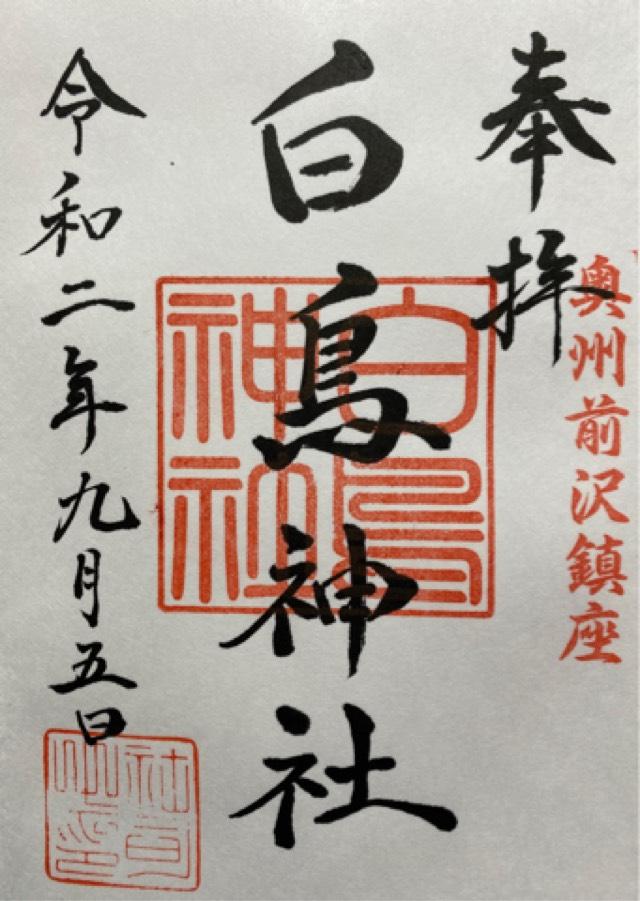 奉拝
奥州前沢鎮座
白鳥神社
白鳥神社
令和二年九月五日